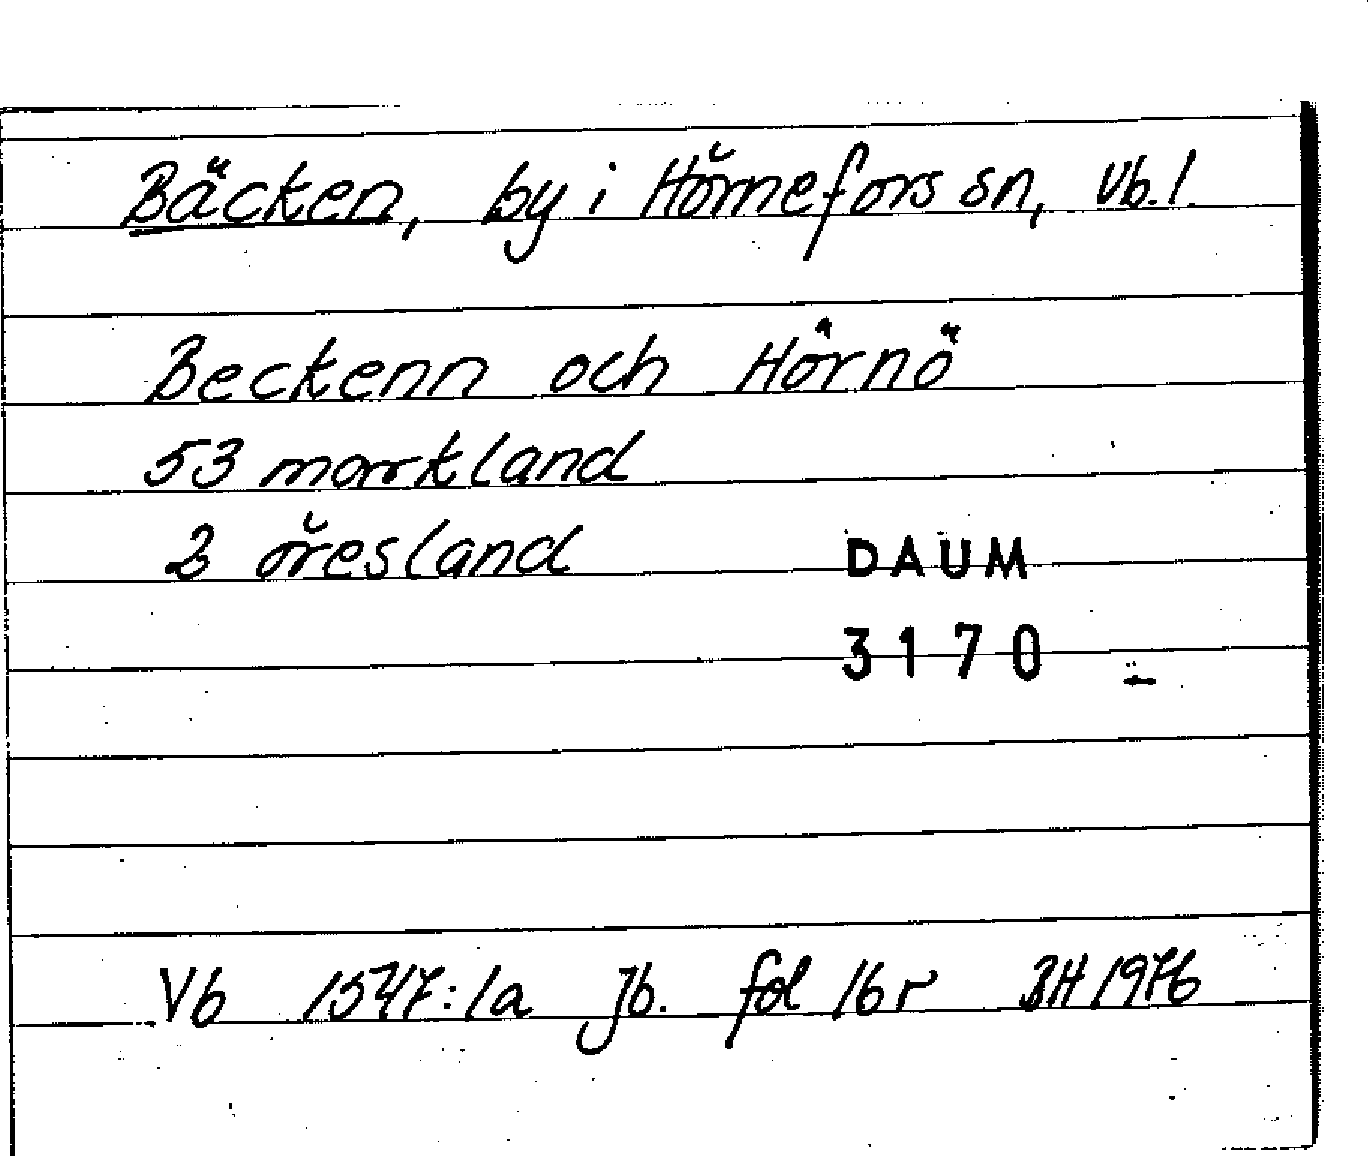 Bäcken, by i Hörnefors sn, Vb. l.
Beckenn och Hörnö
53 markland
2 öresland
DAUM
3170
Vb 1547:1a Jb. fol 16r BH 1976